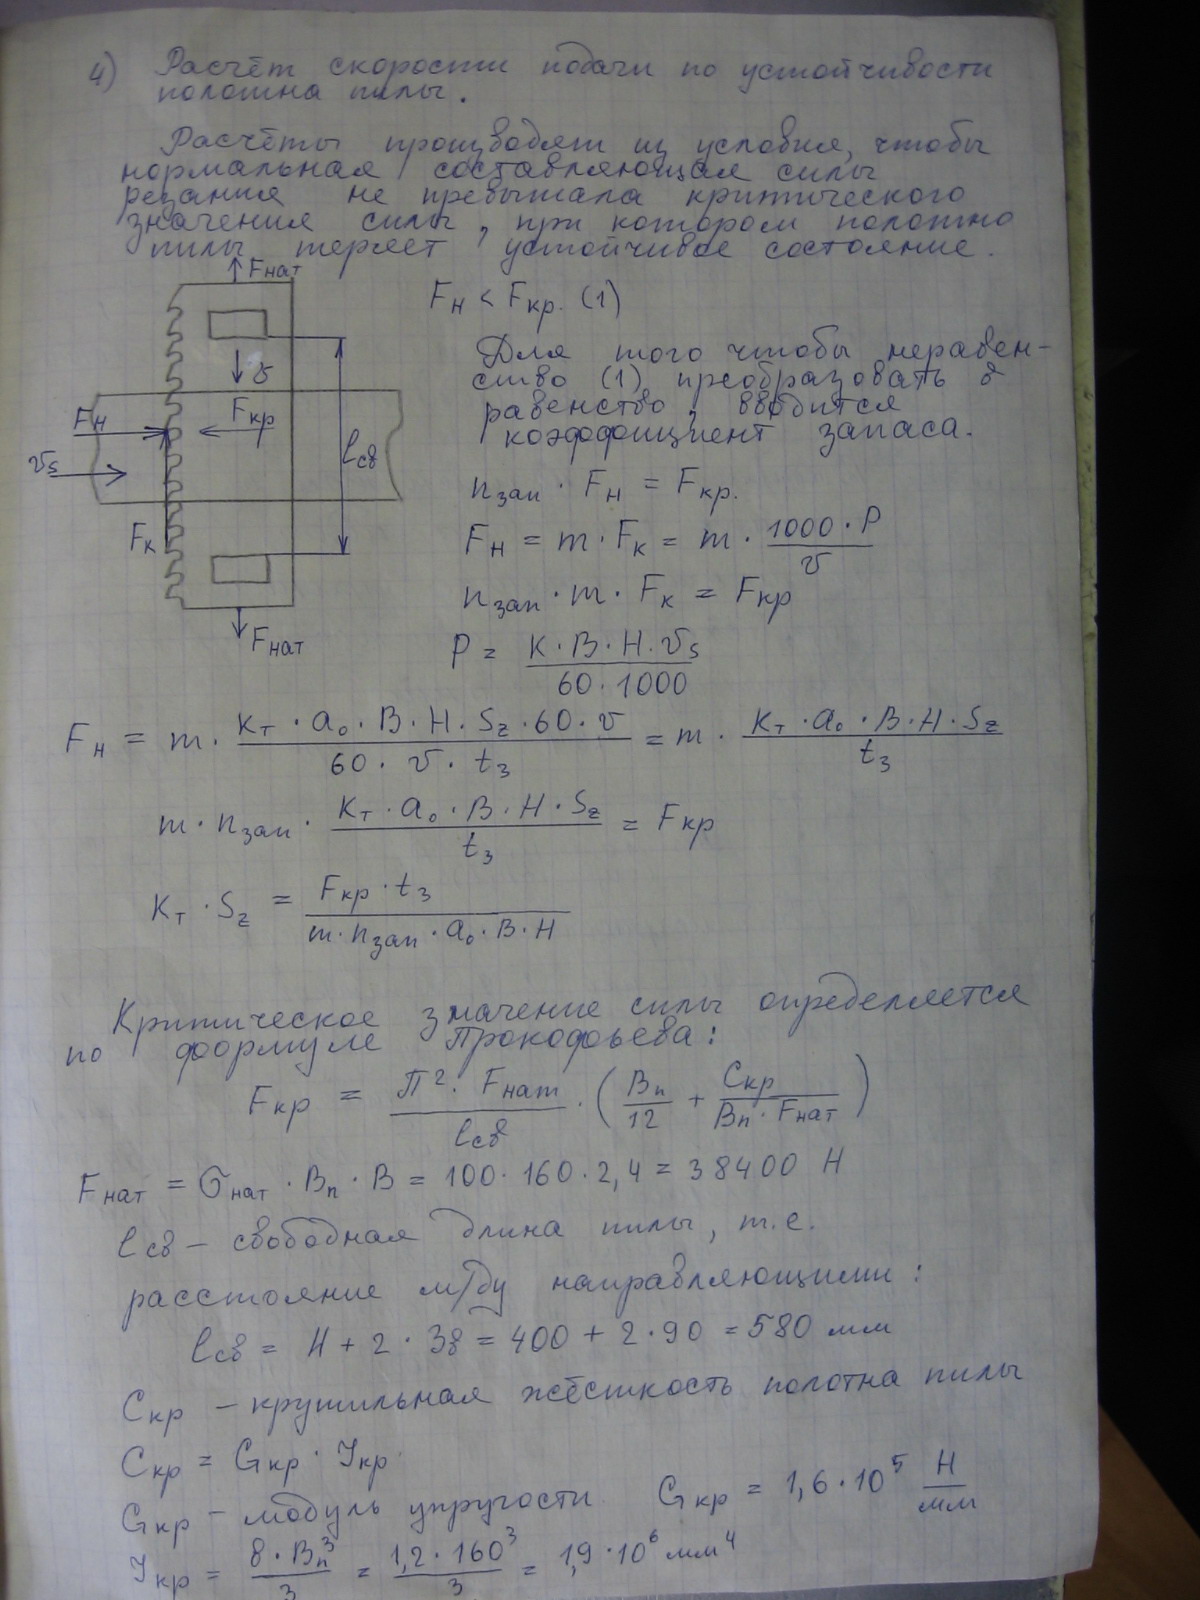 4) Расчёт скорости подачи по устойчивости
полотна пилы.
Расчёты производят из условия, чтобы
нормальная составляющая силы
резания не превышала критического
значения силы, при котором полотно
пилы теряет устойчивое состояние.
Fнат
Fн < Fкр. (1)
Для того чтобы неравен-
ство (1) преобразовать в
равенство, вводится
коэффициент запаса.
v
Fн
Fкр
lсв
vs
Fк
Fнат
nзап · Fн = Fкр.
Fн = m · Fк = m · 1000 · P / v
nзап · m · Fк = Fкр
P = K · B · H · vs / 60 · 1000
Fн = m · Kт · a₀ · B · H · Sz · 60 · v / 60 · v · tз = m · Kт · a₀ · B · H · Sz / tз
m · nзап · Kт · a₀ · B · H · Sz / tз = Fкр
Kт · Sz = Fкр · tз / m · nзап · a₀ · B · H
Критическое значение силы определяется
по формуле Прокофьева:
Fкр = П² · Fнат / lсв · (Bп / 12 + Cкр / Bп · Fнат)
Fнат = σнат · Bп · B = 100 · 160 · 2,4 = 38400 Н
lсв – свободная длина пилы, т.е.
расстояние м/ду направляющими:
lсв = H + 2 · 3в = 400 + 2 · 90 = 580 мм
Cкр – крутильная жёсткость полотна пилы
Cкр = Gкр · Jкр
Gкр – модуль упругости. Gкр = 1,6 · 10⁵ Н / мм
Jкр = 8 · Bп³ / 3 = 1,2 · 160³ / 3 = 1,9 · 10⁶ мм⁴